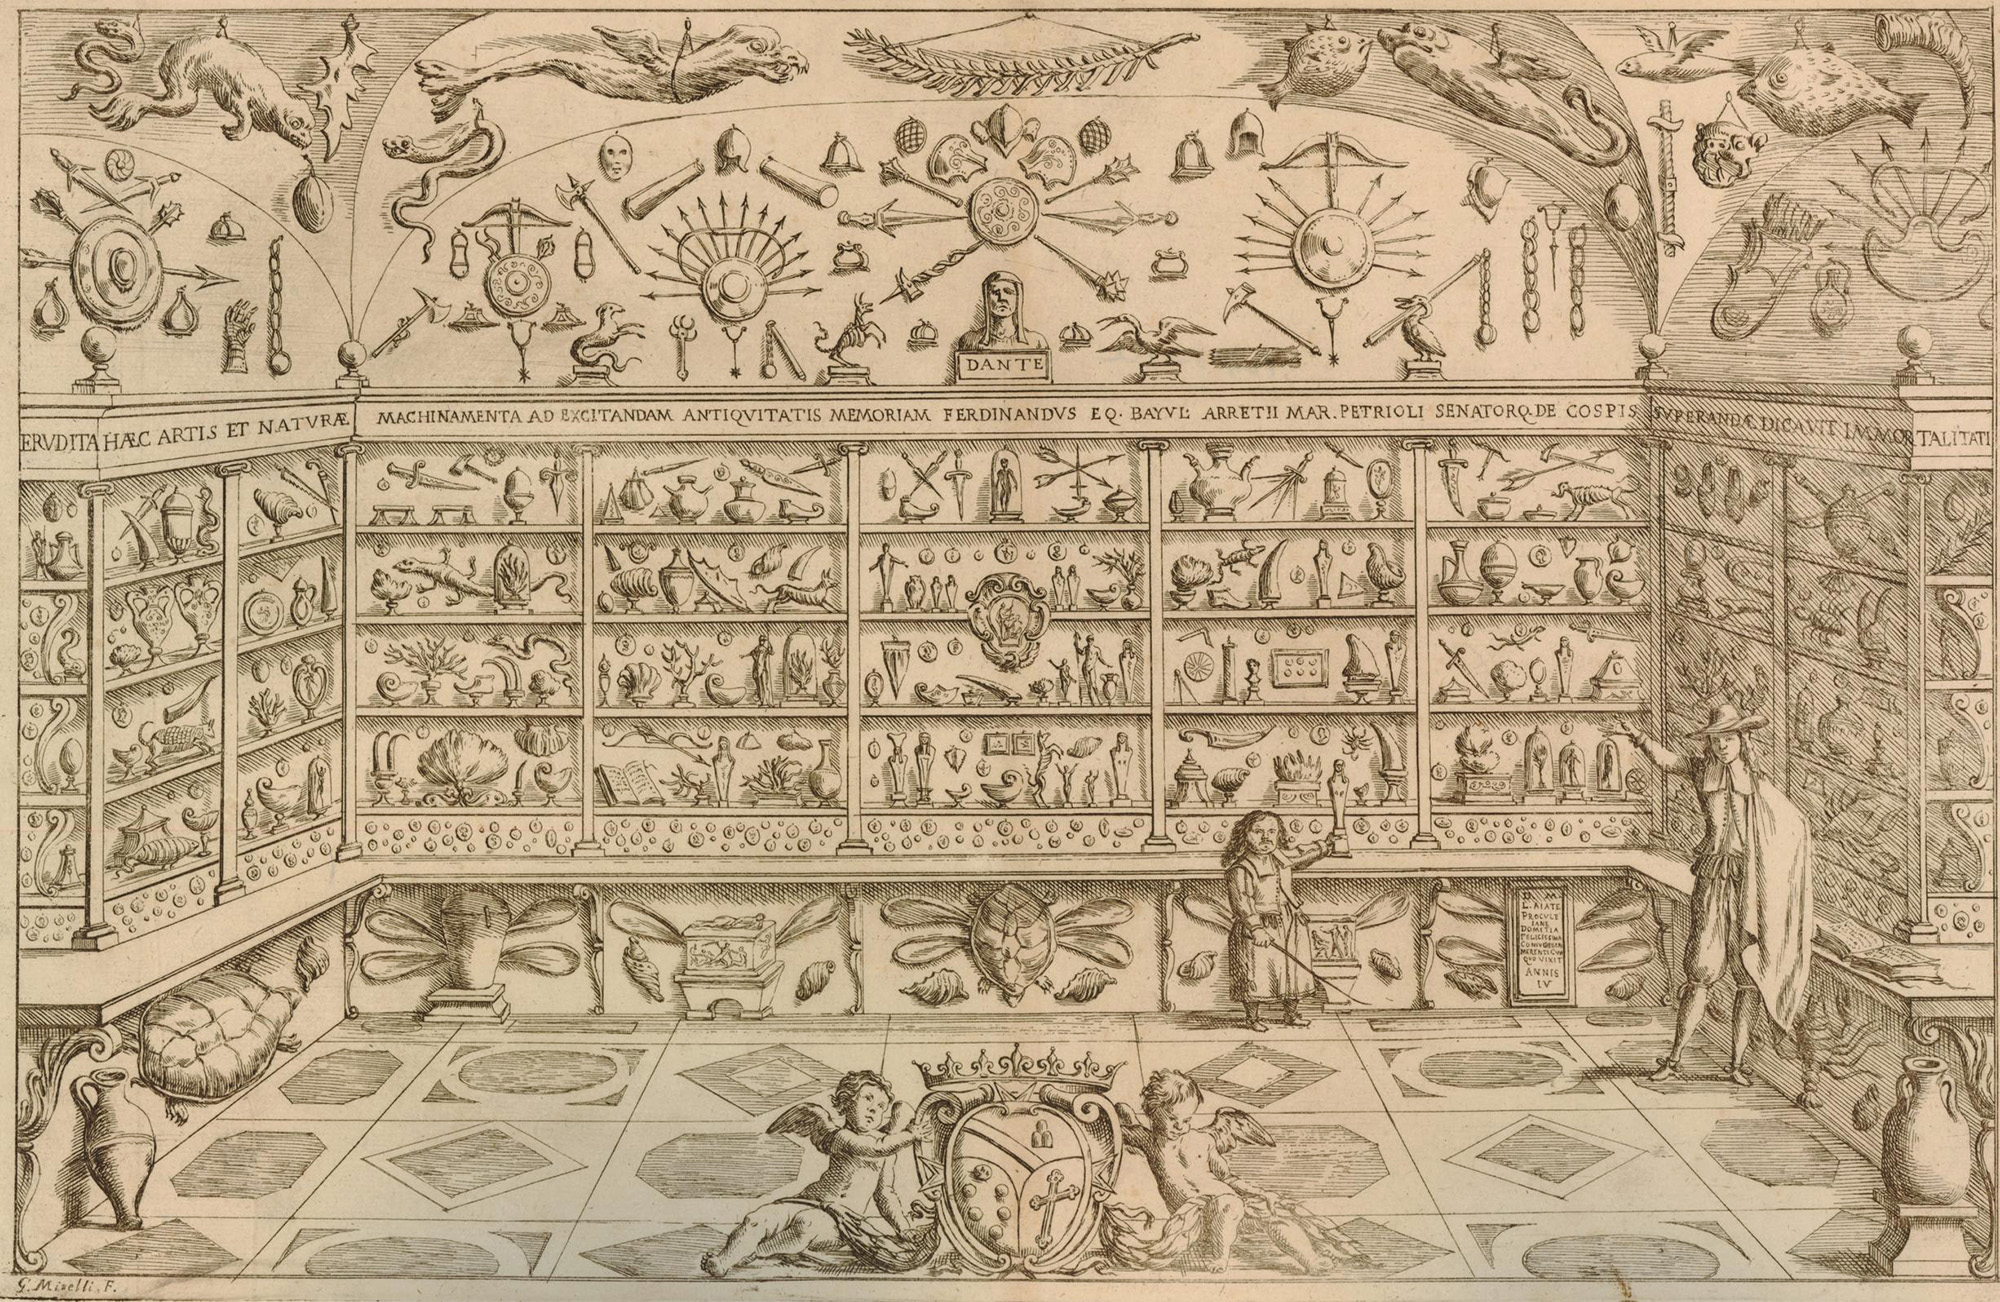 DANTE
ERVDITA HÆC ARTIS ET NATVRÆ MACHINAMENTA AD EXCITANDAM ANTIQVITATIS MEMORIAM FERDINANDVS EQ. BAYVL. ARRETII MAR. PETRIOLI SENATORQ. DE COSPIS SVPERANDÆ DICAVIT IMMORTALITATI
L. AIATE
PROCVLE
IANE
DOMITIA
FELICISSMA
CONIVGEBEN
MERENTI CVM
QVO VIXIT
ANNIS
IV
G. Mitelli, F.